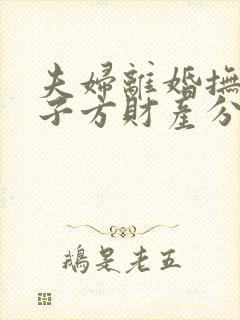 夫婦離婚撫
子方財產分
鵝是老五